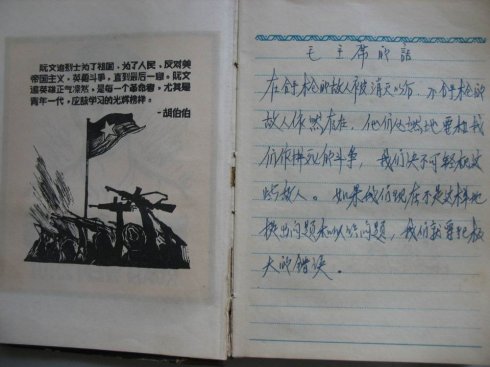 阮文追烈士为了祖国,为了人民,反对美
帝国主义,英勇斗争,直到最后一息。阮文
追英雄正气凛然,是每一个革命者,尤其是
青年一代,应该学习的光辉榜样。
-胡伯伯
毛主席的話
在拿枪的敌人被消灭以后,不拿枪的
敌人依然存在,他们必然地要和我
们作拼死的斗争,我们决不可轻视这
些敌人。如果我们现在不是这样地
提出问题和认识问题,我们就要犯极
大的错误。